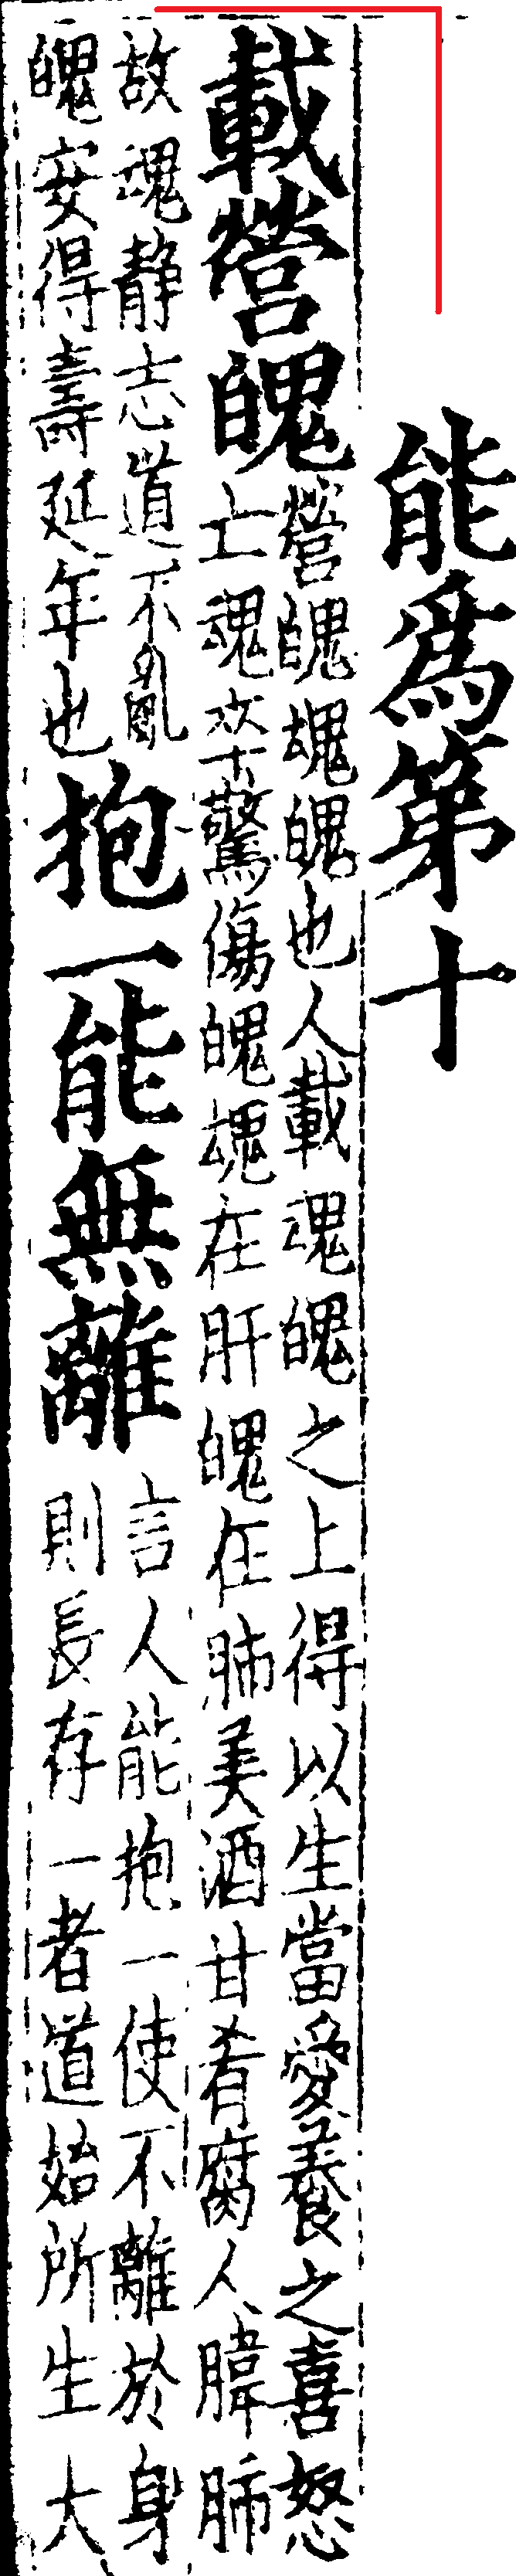 能爲第十
載營魄
營魄魂魄也人載魂魄之上得以生當愛養之喜怒
亡魂卒驚傷魄魂在肝魄在肺美酒甘肴腐人肺
故魂静志道不亂
魄安得壽延年也
抱一能無離
言人能抱一使不離於身
則長存一者道始所生大